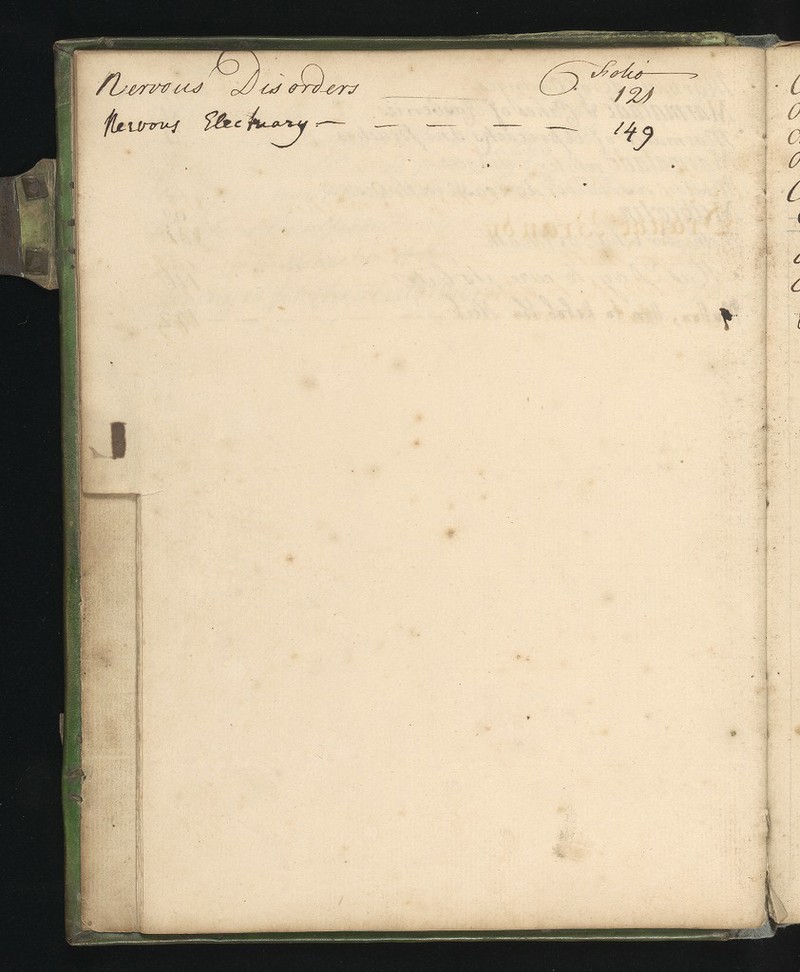 Folio
Nervous Disorders 121
Nervous Electuary — — — — — 149